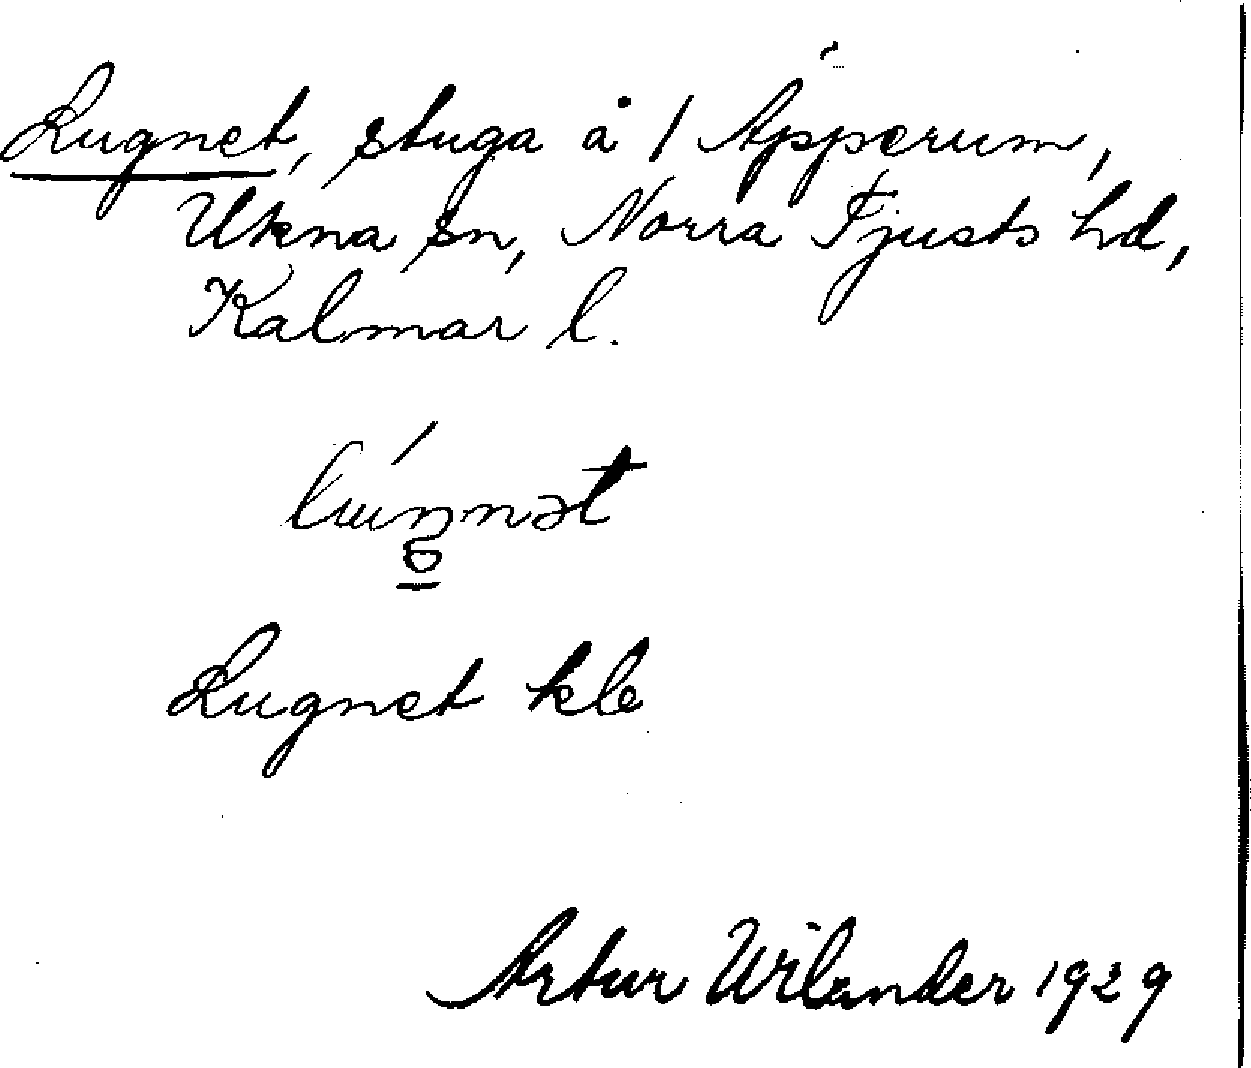 Lugnet, stuga å 1 Äpperum,
Ukna sn, Norra Tjusts hd,
Kalmar l.
Lugnet kle
Artur Wilander 1929